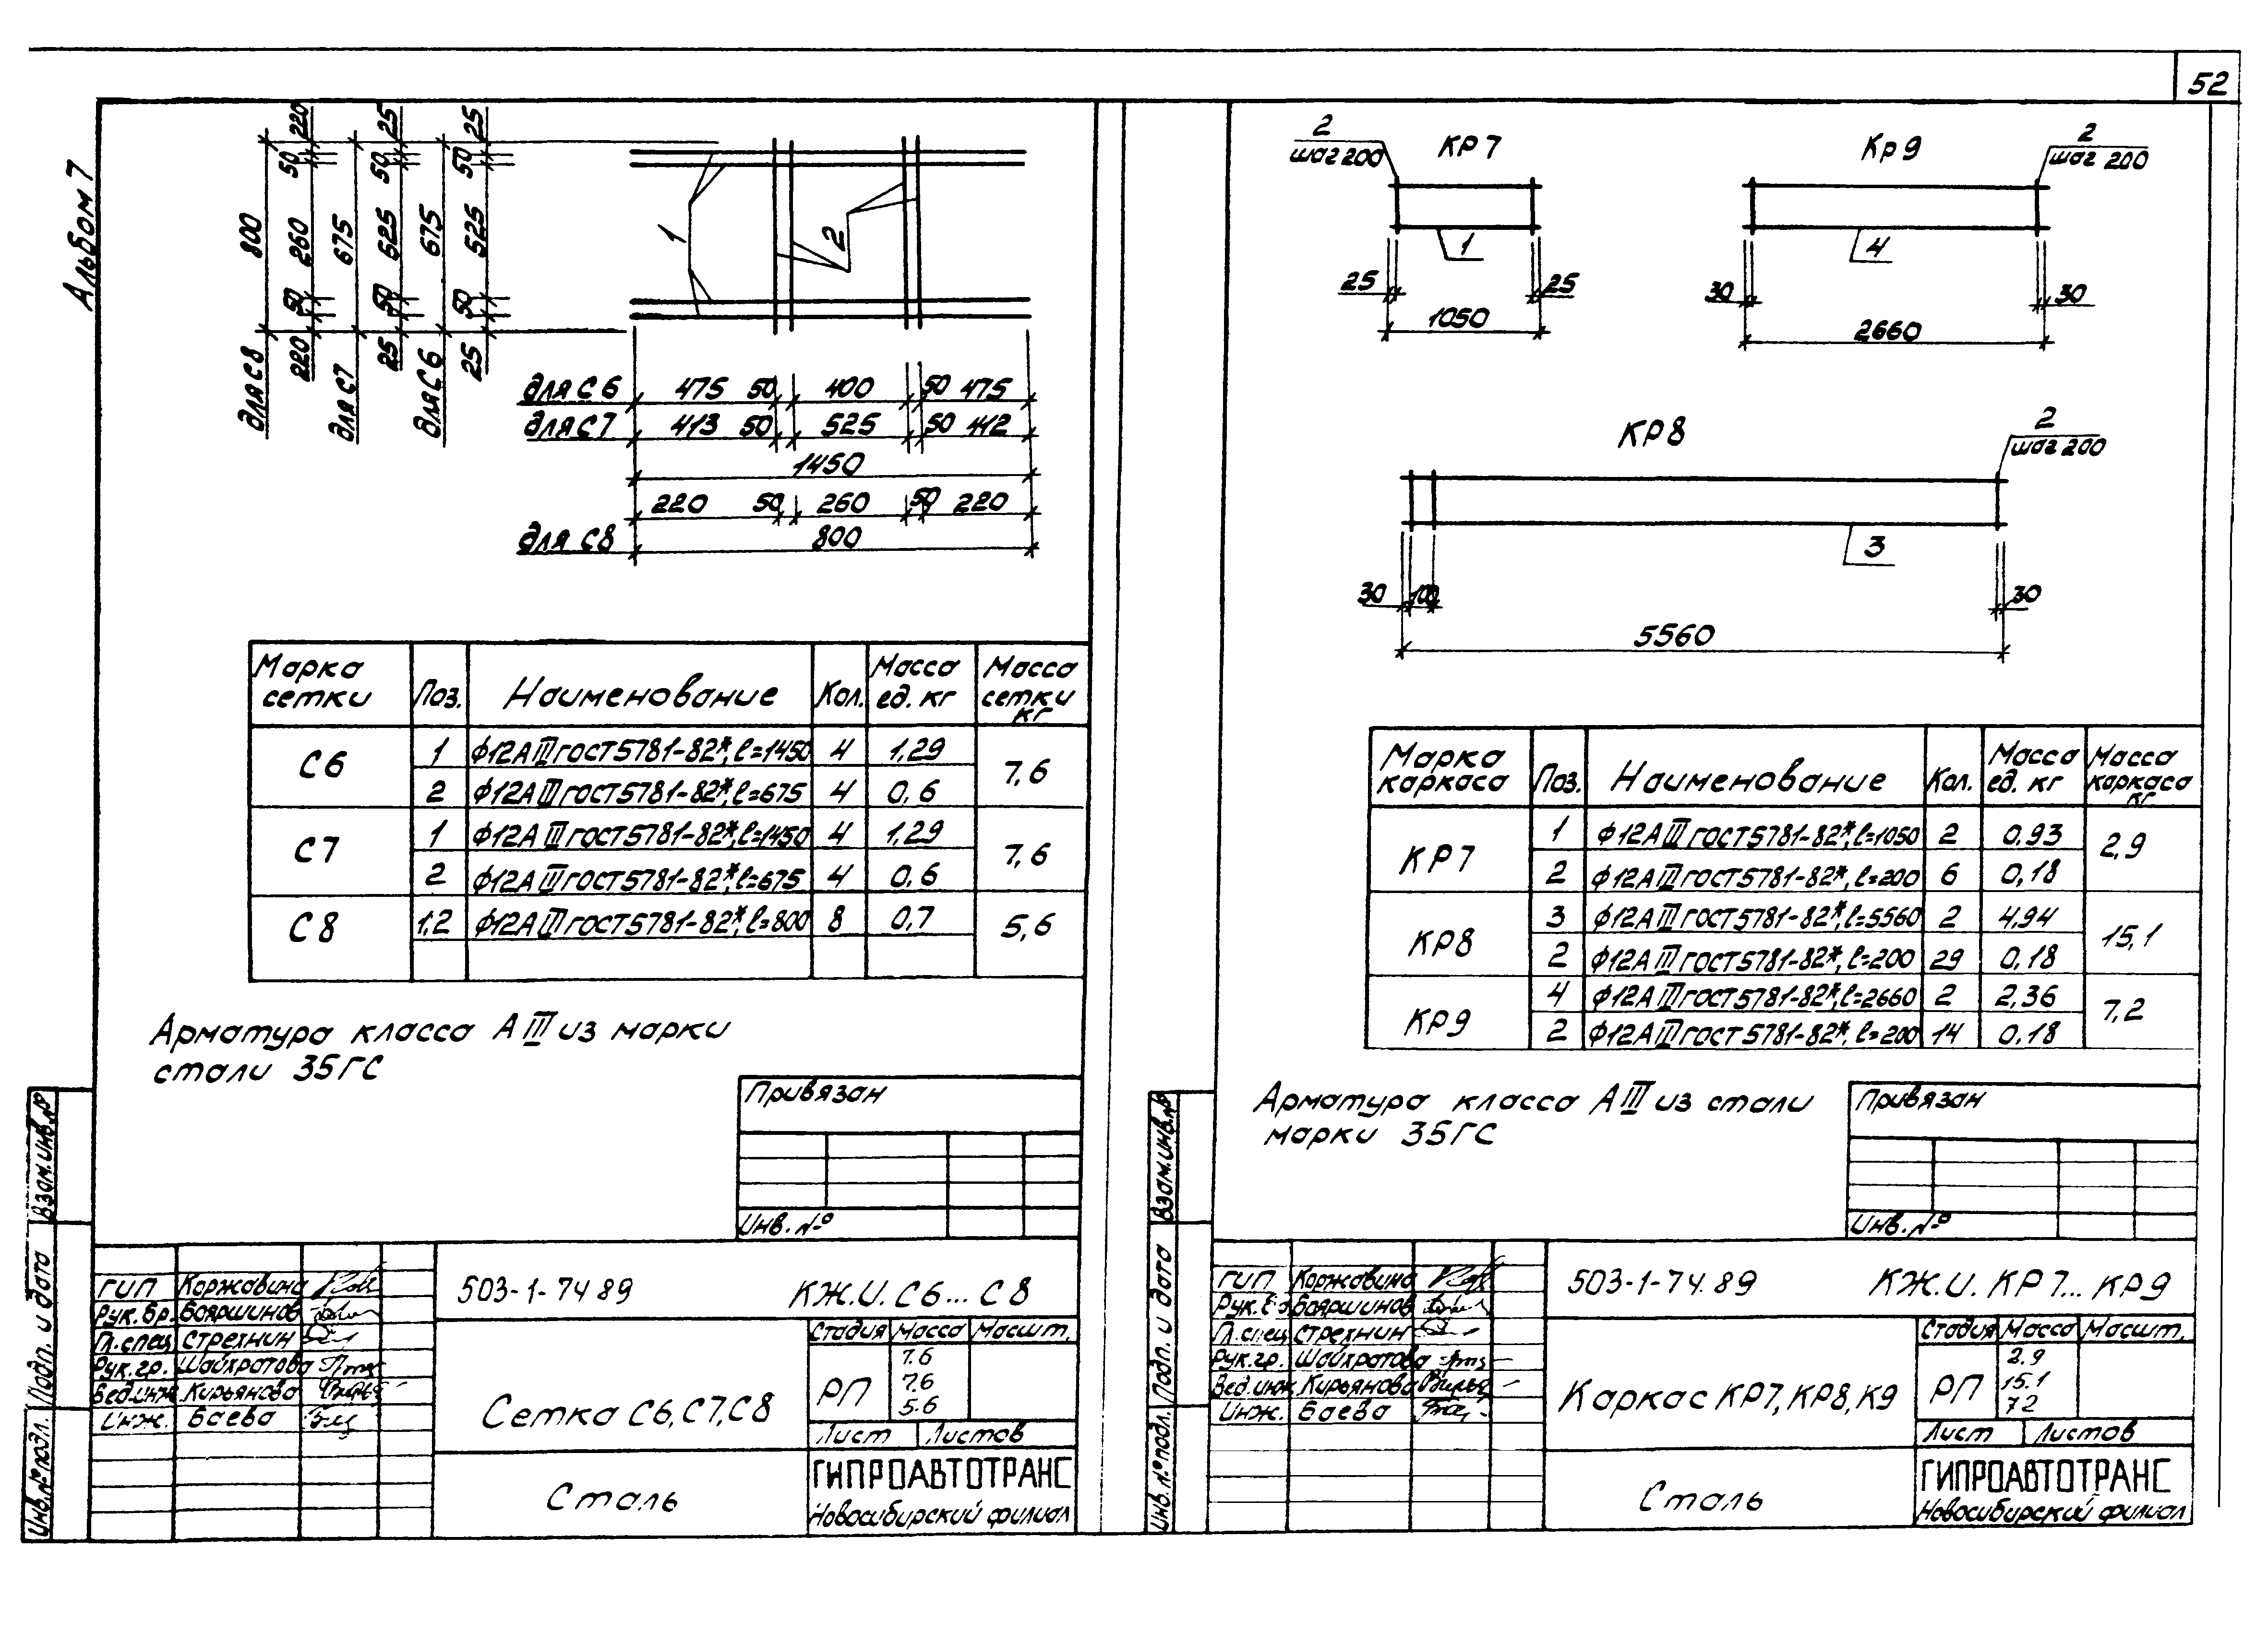 52
Альбом 7
220 25 25
50 50 50
800 260 675 625 675 525
50 50 50
220 25 25
для С8 для С7 для С6
1 2
для С6 475 50 400 50 475
для С7 413 50 525 50 412
1450
220 50 260 50 220
для С8 800
Марка сетки Поз. Наименование Кол. Масса ед. кг Масса сетки кг
С6 1 ф12АIII ГОСТ 5781-82*, ℓ=1450 4 1,29 7,6
2 ф12АIII ГОСТ 5781-82*, ℓ=675 4 0,6
С7 1 ф12АIII ГОСТ 5781-82*, ℓ=1450 4 1,29 7,6
2 ф12АIII ГОСТ 5781-82*, ℓ=675 4 0,6
С8 1,2 ф12АIII ГОСТ 5781-82*, ℓ=800 8 0,7 5,6
Арматура класса АIII из марки
стали 35ГС
Привязан
Инв. №
Взам.инв.№
Подп. и дата
Инв.№подл.
ГИП Коржавина
Рук.бр. Бояршинов
Гл.спец Стрехнин
Рук.гр. Шайхратова
Вед.инж Кирьянова
Инж. Баева
503-1-74 89 КЖ.И. С6... С8
Сетка С6, С7, С8
Стадия Масса Масшт.
РП 7.6
7.6
5.6
Лист Листов
Сталь
ГИПРОАВТОТРАНС
Новосибирский филиал
2
шаг 200
КР7
1
25 25
1050
Кр9
2
шаг 200
4
30 30
2660
КР8
2
шаг 200
3
30 100 30
5560
Марка каркаса Поз. Наименование Кол. Масса ед. кг Масса каркаса кг
КР7 1 ф12АIII ГОСТ 5781-82*, ℓ=1050 2 0,93 2,9
2 ф12АIII ГОСТ 5781-82*, ℓ=200 6 0,18
КР8 3 ф12АIII ГОСТ 5781-82*, ℓ=5560 2 4,94 15,1
2 ф12АIII ГОСТ 5781-82*, ℓ=200 29 0,18
КР9 4 ф12АIII ГОСТ 5781-82*, ℓ=2660 2 2,36 7,2
2 ф12АIII ГОСТ 5781-82*, ℓ=200 14 0,18
Арматура класса АIII из стали
марки 35ГС
Привязан
Инв. №
Взам.инв.№
Подп. и дата
Инв.№подл.
ГИП Коржавина
Рук. Бояршинов
Гл.спец Стрехнин
Рук.гр. Шайхратова
Вед.инж Кирьянова
Инж. Баева
503-1-74.89 КЖ.И. КР7... КР9
Каркас КР7, КР8, К9
Стадия Масса Масшт.
РП 2.9
15.1
7.2
Лист Листов
Сталь
ГИПРОАВТОТРАНС
Новосибирский филиал